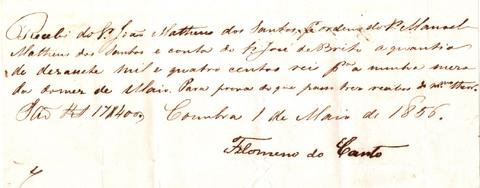 Recebi do Sr. João Matheus dos Santos, à ordem do Sr. Manoel
Matheus dos Santos e conta do Sr. José de Brito a quantia
de desasete mil e quatro centos reis pa a minha meza
do do mez de Maio. Para prova do que passo tres recibos do mmo theor.
São Rs 17$400 Coimbra 1 de Maio de 1856.
Filomeno do Canto